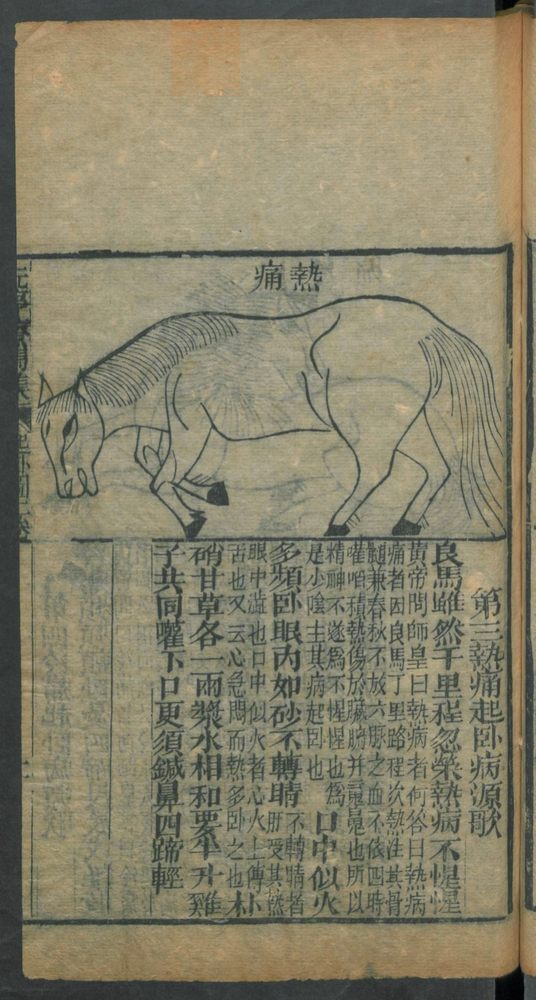 熱痛
第三熱痛起卧病源歌
良馬雖然千里程忽染熱病不惺惺
黃帝問師皇曰熱病者何答曰熱病
痛者因良馬丁里路程次熱注其骨
髓兼春秋不放六脉之血不依四時
嚾啗積熱傷於藏腑并也所以
精神不遂爲不惺惺也爲
是小陰主其病起卧也
口中似火
多頻卧眼內如砂不轉睛
不轉睛者
肝受其熱
眼中澁也口中似火者心火上傳
舌也又云心急悶而熱多卧之也
朴
硝甘草各一兩漿水相和要半升雞
子共同嚾下口更須鍼鼻四蹄輕